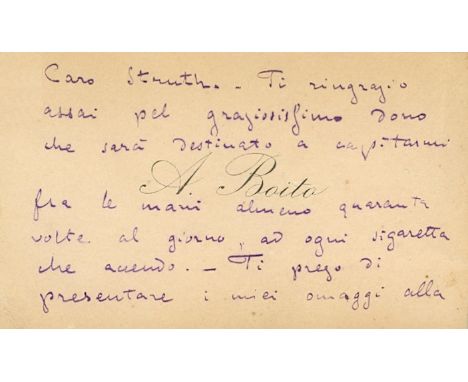 Caro Struth. - Ti ringrazio
assai pel graziosissimo dono
che sarà destinato a capitarmi
A. Boito
fra le mani almeno quaranta
volte al giorno, ad ogni sigaretta
che accendo. - Ti prego di
presentare i miei omaggi alla